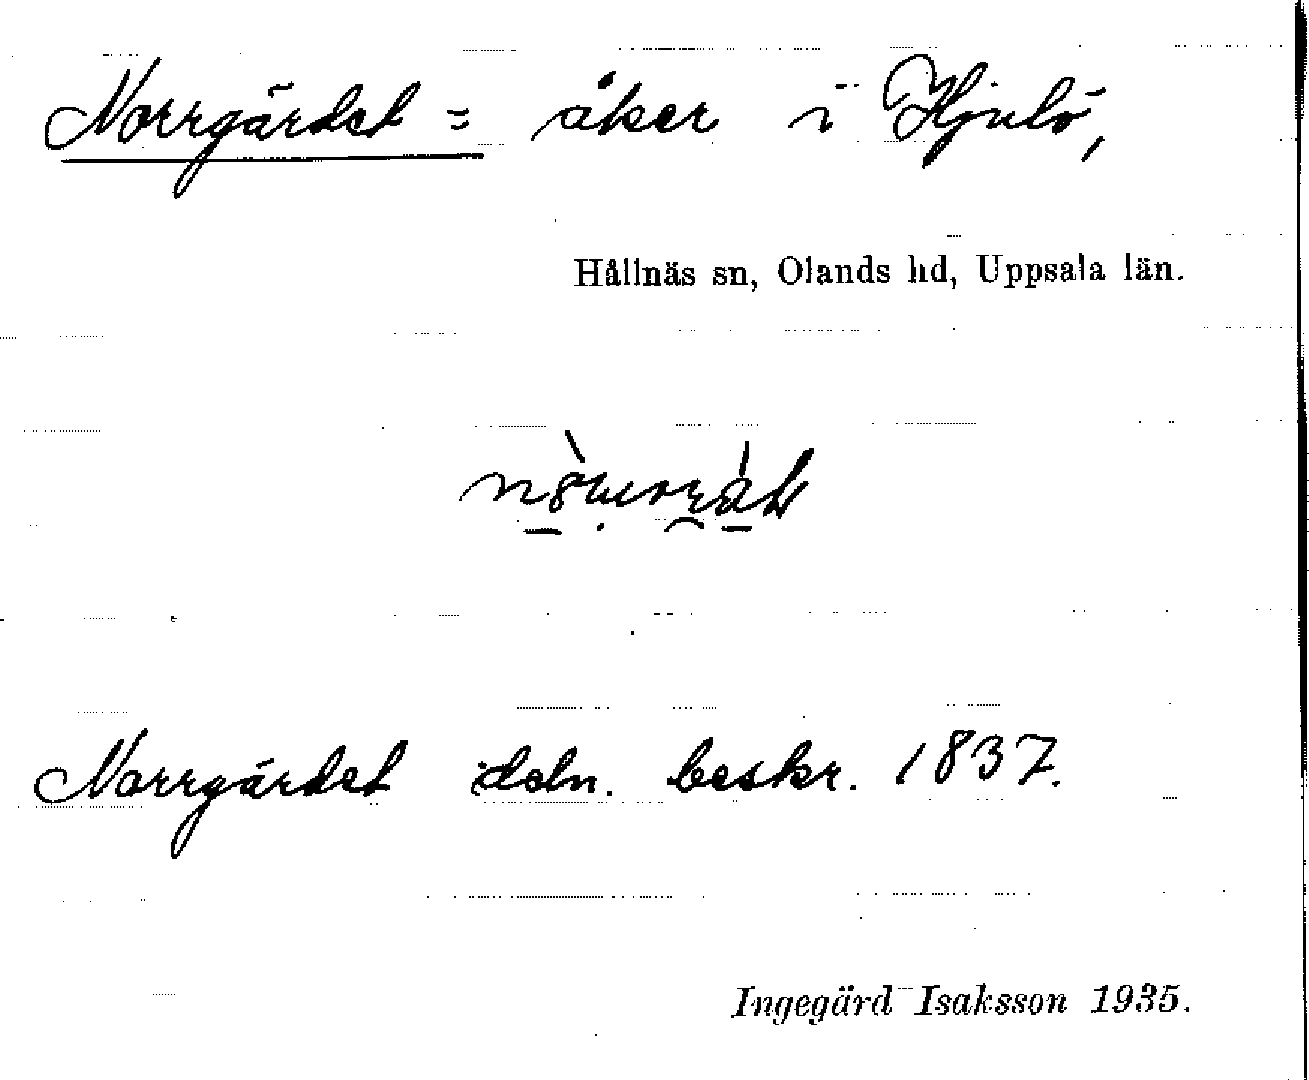 Norrgärdet = åker i Hjulö,
Hållnäs sn, Olands hd, Uppsala län.
Norrgärdet dsln. beskr. 1837.
Ingegärd Isaksson 1935.